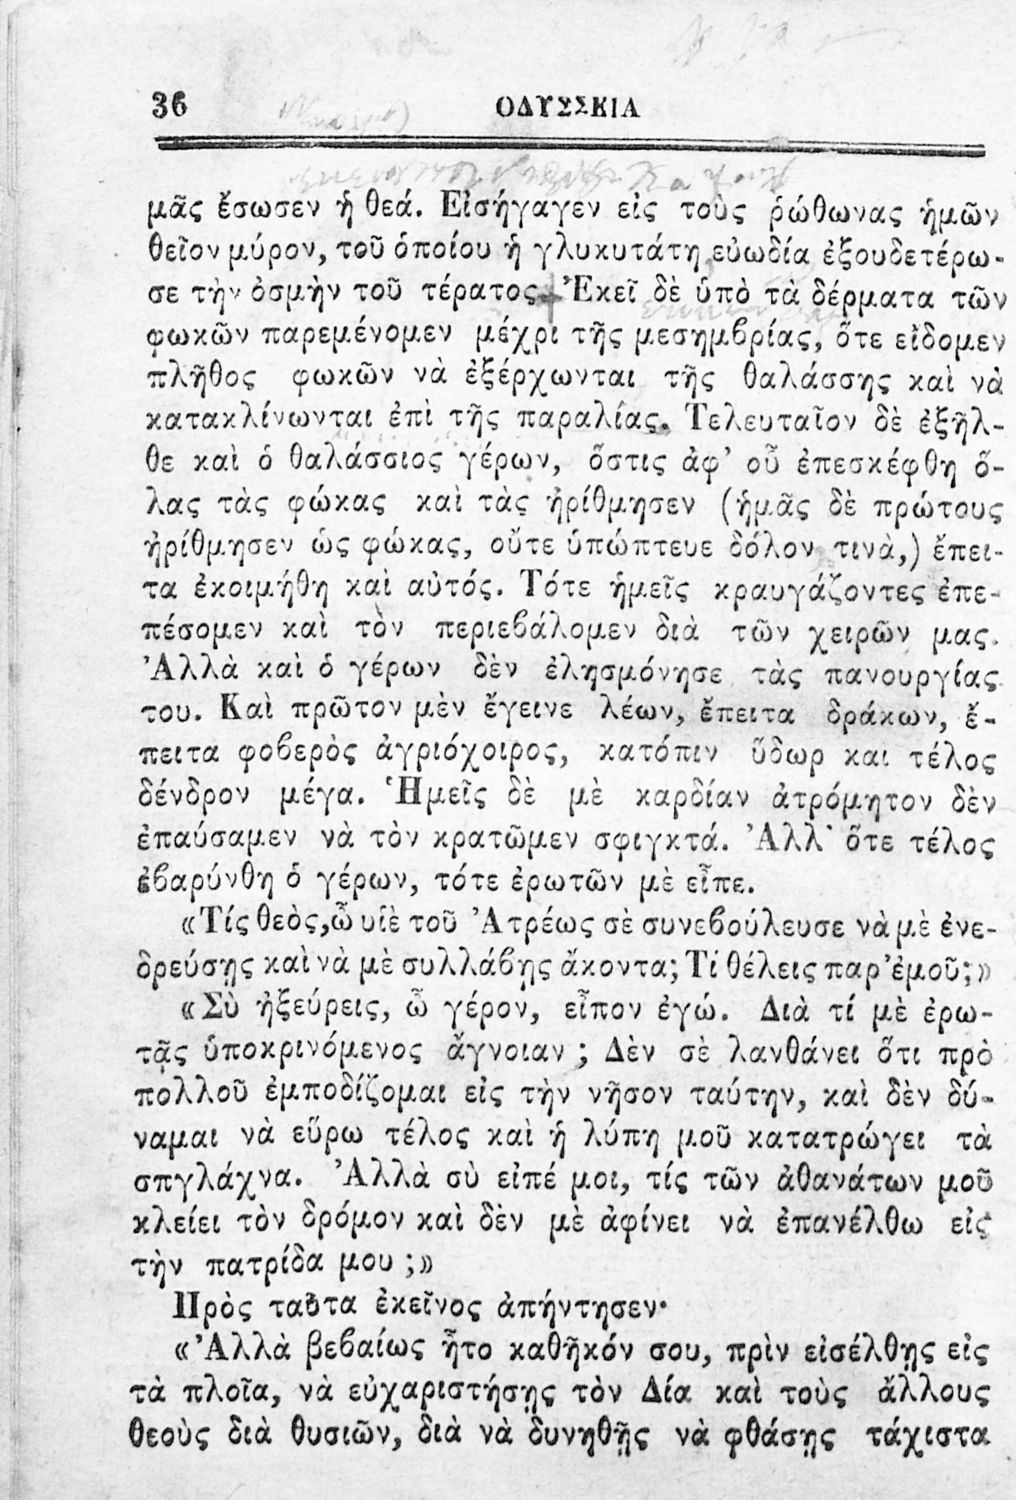 36 ΟΔΥΣΣΕΙΑ
μᾶς ἔσωσεν ἡ θεά. Εἰσήγαγεν εἰς τοὺς ῥώθωνας ἡμῶν
θεῖον μύρον, τοῦ ὁποίου ἡ γλυκυτάτη εὐωδία ἐξουδετέρω-
σε τὴν ὀσμὴν τοῦ τέρατος. Ἐκεῖ δὲ ὑπὸ τὰ δέρματα τῶν
φωκῶν παρεμένομεν μέχρι τῆς μεσημβρίας, ὅτε εἴδομεν
πλῆθος φωκῶν νὰ ἐξέρχωνται τῆς θαλάσσης καὶ νὰ
κατακλίνωνται ἐπὶ τῆς παραλίας. Τελευταῖον δὲ ἐξῆλ-
θε καὶ ὁ θαλάσσιος γέρων, ὅστις ἀφ’ οὗ ἐπεσκέφθη ὅ-
λας τὰς φώκας καὶ τὰς ἠρίθμησεν (ἡμᾶς δὲ πρώτους
ἠρίθμησεν ὡς φώκας, οὔτε ὑπώπτευε δόλον τινὰ,) ἔπει-
τα ἐκοιμήθη καὶ αὐτός. Τότε ἡμεῖς κραυγάζοντες ἐπε-
πέσομεν καὶ τὸν περιεβάλομεν διὰ τῶν χειρῶν μας.
Ἀλλὰ καὶ ὁ γέρων δὲν ἐλησμόνησε τὰς πανουργίας
του. Καὶ πρῶτον μὲν ἔγεινε λέων, ἔπειτα δράκων, ἔ-
πειτα φοβερὸς ἀγριόχοιρος, κατόπιν ὕδωρ και τέλος
δένδρον μέγα. Ἡμεῖς δὲ μὲ καρδίαν ἀτρόμητον δὲν
ἐπαύσαμεν νὰ τὸν κρατῶμεν σφιγκτά. Ἀλλ’ ὅτε τέλος
ἐβαρύνθη ὁ γέρων, τότε ἐρωτῶν μὲ εἶπε.
«Τίς θεὸς,ὦ υἱὲ τοῦ Ἀτρέως σὲ συνεβούλευσε νὰ μὲ ἐνε-
δρεύσῃς καὶ νὰ μὲ συλλάβῃς ἄκοντα; Τί θέλεις παρ’ἐμοῦ;»
«Σὺ ἠξεύρεις, ὦ γέρον, εἶπον ἐγώ. Διὰ τί μὲ ἐρω-
τᾷς ὑποκρινόμενος ἄγνοιαν ; Δὲν σὲ λανθάνει ὅτι πρὸ
πολλοῦ ἐμποδίζομαι εἰς τὴν νῆσον ταύτην, καὶ δὲν δύ-
ναμαι νὰ εὕρω τέλος καὶ ἡ λύπη μοῦ κατατρώγει τὰ
σπγλάχνα. Ἀλλὰ σὺ εἰπέ μοι, τίς τῶν ἀθανάτων μοῦ
κλείει τὸν δρόμον καὶ δὲν μὲ ἀφίνει νὰ ἐπανέλθω εἰς
τὴν πατρίδα μου ;»
Πρὸς ταῦτα ἐκεῖνος ἀπήντησεν·
«Ἀλλὰ βεβαίως ἦτο καθῆκόν σου, πρὶν εἰσέλθῃς εἰς
τὰ πλοῖα, νὰ εὐχαριστήσῃς τὸν Δία καὶ τοὺς ἄλλους
θεοὺς διὰ θυσιῶν, διὰ νὰ δυνηθῇς νὰ φθάσῃς τάχιστα